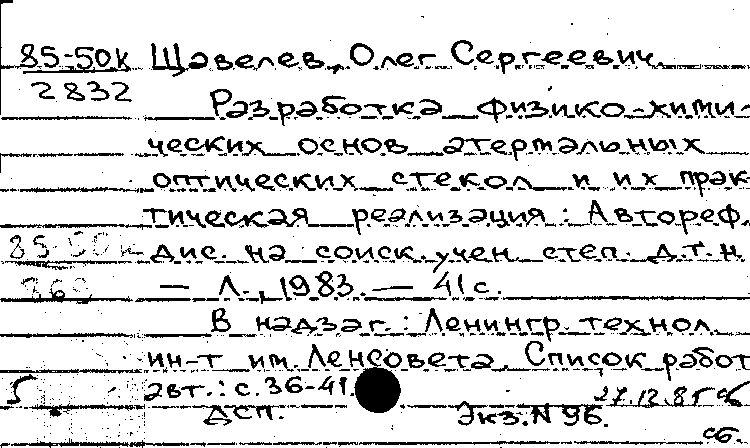 85-50к Щавелев, Олег Сергеевич.
2832
Разработка физико-хими-
ческих основ атермальных
оптических стекол и их прак-
тическая реализация: Автореф.
85-50к дис. на соиск. учен. степ. д.т.н
869 — Л., 1983. — 41 с.
В надзаг.: Ленингр. технол.
ин-т им. Ленсовета. Список работ
5 авт.: с. 36-41.
27.12.85г
ДСП. Экз. N 96.
сб.